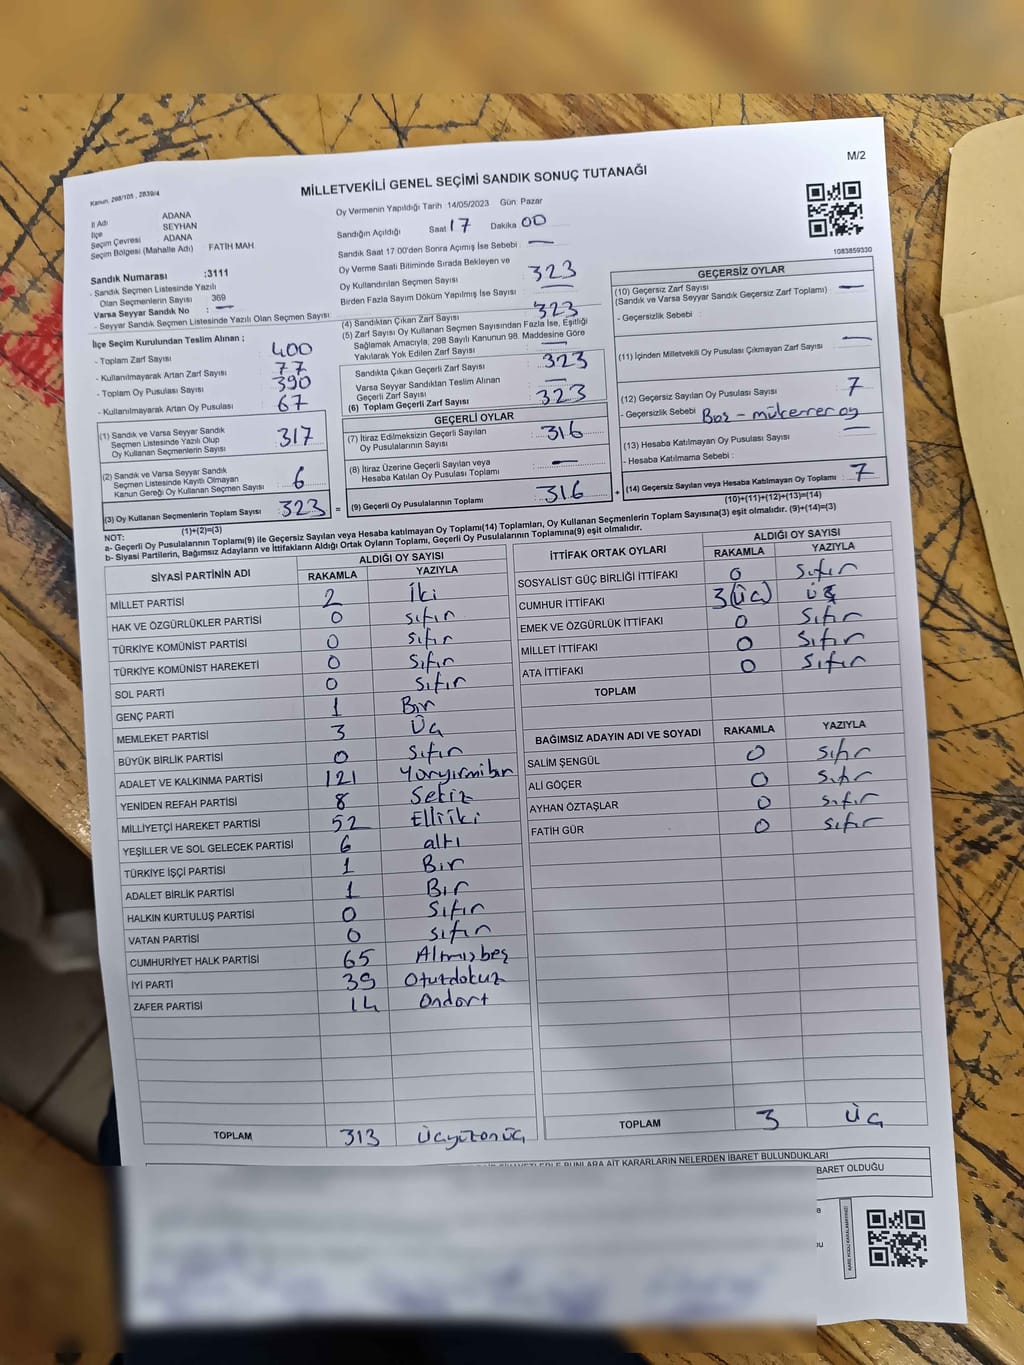 M/2
Kanun: 298/105 , 2839/4
MİLLETVEKİLİ GENEL SEÇİMİ SANDIK SONUÇ TUTANAĞI
1083859330
İl Adı ADANA
İlçe SEYHAN
Seçim Çevresi ADANA
Seçim Bölgesi (Mahalle Adı) FATİH MAH
Sandık Numarası :3111
- Sandık Seçmen Listesinde Yazılı
Olan Seçmenlerin Sayısı : 369
Varsa Seyyar Sandık No : —
- Seyyar Sandık Seçmen Listesinde Yazılı Olan Seçmen Sayısı:
İlçe Seçim Kurulundan Teslim Alınan ;
- Toplam Zarf Sayısı : 400
- Kullanılmayarak Artan Zarf Sayısı : 77
- Toplam Oy Pusulası Sayısı : 390
- Kullanılmayarak Artan Oy Pusulası : 67
(1) Sandık ve Varsa Seyyar Sandık
Seçmen Listesinde Yazılı Olup
Oy Kullanan Seçmenlerin Sayısı : 317
(2) Sandık ve Varsa Seyyar Sandık
Seçmen Listesinde Kayıtlı Olmayan
Kanun Gereği Oy Kullanan Seçmen Sayısı : 6
(3) Oy Kullanan Seçmenlerin Toplam Sayısı : 323
(1)+(2)=(3)
Oy Vermenin Yapıldığı Tarih 14/05/2023 Gün: Pazar
Sandığın Açıldığı Saat 17 Dakika 00
Sandık Saat 17:00'den Sonra Açılmış İse Sebebi : —
Oy Verme Saati Bitiminde Sırada Bekleyen ve
Oy Kullandırılan Seçmen Sayısı : 323
Birden Fazla Sayım Döküm Yapılmış İse Sayısı : —
(4) Sandıktan Çıkan Zarf Sayısı : 323
(5) Zarf Sayısı Oy Kullanan Seçmen Sayısından Fazla İse, Eşitliği
Sağlamak Amacıyla, 298 Sayılı Kanunun 98. Maddesine Göre
Yakılarak Yok Edilen Zarf Sayısı : —
Sandıkta Çıkan Geçerli Zarf Sayısı : 323
Varsa Seyyar Sandıktan Teslim Alınan
Geçerli Zarf Sayısı : —
(6) Toplam Geçerli Zarf Sayısı : 323
GEÇERLİ OYLAR
(7) İtiraz Edilmeksizin Geçerli Sayılan
Oy Pusulasının Sayısı : 316
(8) İtiraz Üzerine Geçerli Sayılan veya
Hesaba Katılan Oy Pusulası Toplamı : —
(9) Geçerli Oy Pusulalarının Toplamı : 316
GEÇERSİZ OYLAR
(10) Geçersiz Zarf Sayısı : —
(Sandık ve Varsa Seyyar Sandık Geçersiz Zarf Toplamı)
- Geçersizlik Sebebi :
(11) İçinden Milletvekili Oy Pusulası Çıkmayan Zarf Sayısı : —
(12) Geçersiz Sayılan Oy Pusulası Sayısı : 7
- Geçersizlik Sebebi : Boş - mükerrer oy
(13) Hesaba Katılmayan Oy Pusulası Sayısı : —
- Hesaba Katılmama Sebebi :
(14) Geçersiz Sayılan veya Hesaba Katılmayan Oy Toplamı : 7
(10)+(11)+(12)+(13)=(14)
NOT:
a- Geçerli Oy Pusulalarının Toplamı(9) ile Geçersiz Sayılan veya Hesaba katılmayan Oy Toplamı(14) Toplamları, Oy Kullanan Seçmenlerin Toplam Sayısına(3) eşit olmalıdır. (9)+(14)=(3)
b- Siyasi Partilerin, Bağımsız Adayların ve İttifakların Aldığı Ortak Oyların Toplamı, Geçerli Oy Pusulalarının Toplamına(9) eşit olmalıdır.
SİYASİ PARTİNİN ADI ALDIĞI OY SAYISI
RAKAMLA YAZIYLA
MİLLET PARTİSİ 2 İki
HAK VE ÖZGÜRLÜKLER PARTİSİ 0 sıfır
TÜRKİYE KOMÜNİST PARTİSİ 0 sıfır
TÜRKİYE KOMÜNİST HAREKETİ 0 Sıfır
SOL PARTİ 0 sıfır
GENÇ PARTİ 1 Bir
MEMLEKET PARTİSİ 3 Üç
BÜYÜK BİRLİK PARTİSİ 0 sıfır
ADALET VE KALKINMA PARTİSİ 121 Yüzyirmibir
YENİDEN REFAH PARTİSİ 8 Sekiz
MİLLİYETÇİ HAREKET PARTİSİ 52 Elliiki
YEŞİLLER VE SOL GELECEK PARTİSİ 6 altı
TÜRKİYE İŞÇİ PARTİSİ 1 Bir
ADALET BİRLİK PARTİSİ 1 Bır
HALKIN KURTULUŞ PARTİSİ 0 Sıfır
VATAN PARTİSİ 0 sıfır
CUMHURİYET HALK PARTİSİ 65 Altmışbeş
İYİ PARTİ 39 Otuzdokuz
ZAFER PARTİSİ 14 Ondört
TOPLAM 313 Üçyüzonüç
İTTİFAK ORTAK OYLARI ALDIĞI OY SAYISI
RAKAMLA YAZIYLA
SOSYALİST GÜÇ BİRLİĞİ İTTİFAKI 0 sıfır
CUMHUR İTTİFAKI 3(üç) üç
EMEK VE ÖZGÜRLÜK İTTİFAKI 0 Sıfır
MİLLET İTTİFAKI 0 Sıfır
ATA İTTİFAKI 0 Sıfır
TOPLAM
BAĞIMSIZ ADAYIN ADI VE SOYADI RAKAMLA YAZIYLA
SALİM ŞENGÜL 0 sıfır
ALİ GÖÇER 0 sıfır
AYHAN ÖZTAŞLAR 0 sıfır
FATİH GÜR 0 sıfır
TOPLAM 3 Üç
BUNLARA AİT KARARLARIN NELERDEN İBARET BULUNDUKLARI
İBARET OLDUĞU